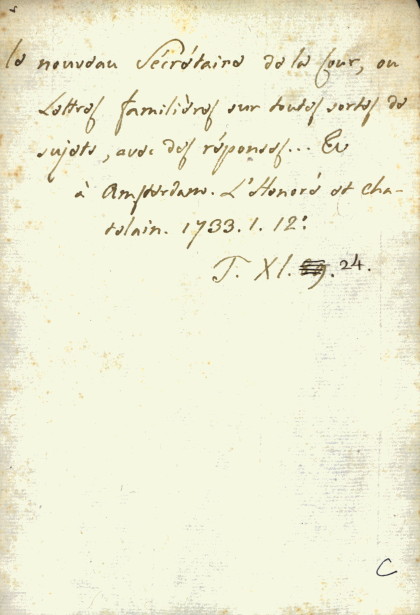 le nouveau Secrétaire de la Cour, ou
Lettres familières sur toutes sortes de
sujets, avec des réponses...
à Amsterdam. L'Honoré et Cha-
telain. 1733. 1. 12:
T. XI. 24.
C